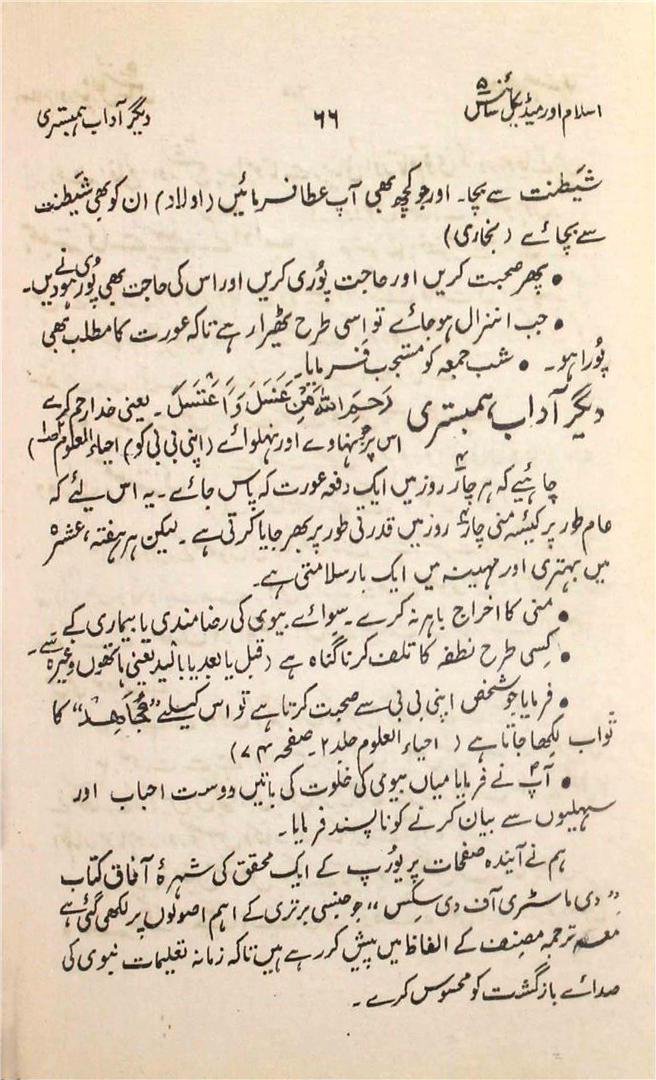 اسلام اور میڈیکل سائنس ۵
۶۶
دیگر آداب ہمبستری
شیَطنت سے بچا۔ اور جو کچھ بھی آپ عطا فرمائیں (اولاد) ان کو بھی شیَطنت
سے بچائے (بخاری)
• پھر صحبت کریں اور حاجت پُوری کریں اور اس کی حاجت بھی پُور ہونے دیں۔
• جب انزال ہو جائے تو اِسی طرح ٹھیرا رہے تاکہ عورت کا مطلب بھی
پُورا ہو۔ • شب جمعہ کو مستحب فرمایا۔
دیگر آداب ہمبستری رَحِمَ اللّٰہُ مَنْ غَسَلَ وَاغْتَسَلَ۔ یعنی خدا رحم کرے
اس پر جو نہاوے اور نہلوائے (اپنی بی بی کو) احیاء العلوم
چاہیٔے کہ ہر چار ۴ روز میں ایک دفعہ عورت کہ پاس جائے۔ یہ اس لیٔے کہ
عام طور پر کیسۂ منی چار ۴ روز میں قدرتی طور پر بھر جایا کرتی ہے۔ لیکن ہر ہفتہ، عشرہ
میں بہتری اور مہینہ میں ایک بار سلامتی ہے۔
• منی کا اخراج باہر نہ کرے۔ سوائے بیوی کی رضامندی یا بیماری کے
• کِسی طرح نطفہ کا تلف کرنا گناہ ہے (قبل یا بعد یا بالید یعنی ہاتھوں وغیرہ سے۔
• فرمایا جو شخص اپنی بی بی سے صحبت کرتا ہے تو اس کیلئے "مُجَاہِد" کا
ثواب لکھا جاتا ہے (احیاء العلوم جلد ۲۔ صفحہ ۷۴)
• آپؐ نے فرمایا میاں بیوی کی خلوت کی باتیں دوست احباب اور
سہیلیوں سے بیان کرنے کو نا پسند فرمایا۔
ہم نے آیندہ صفحات پر یوُرپ کے ایک محقق کی شہرۂ آفاق کتاب
"دی ماسٹری آف دی سکِس" جو جنسی برتری کے اہم اصولوں پر لکھی گئی ہے
معہ ترجمہ مصنف کے الفاظ میں پیش کر رہے ہیں تاکہ زمانہ تعلیمات نبوی کی
صدائے بازگشت کو محسوس کرے۔